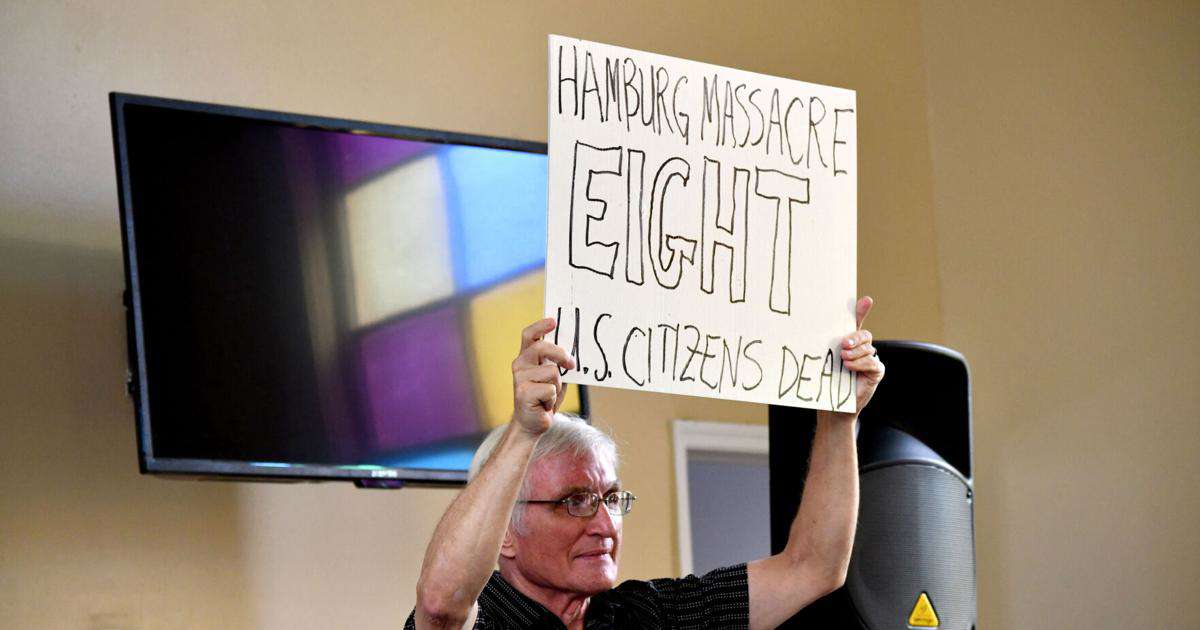 HAMBURG MASSACRE
EIGHT
U.S. CITIZENS DEAD